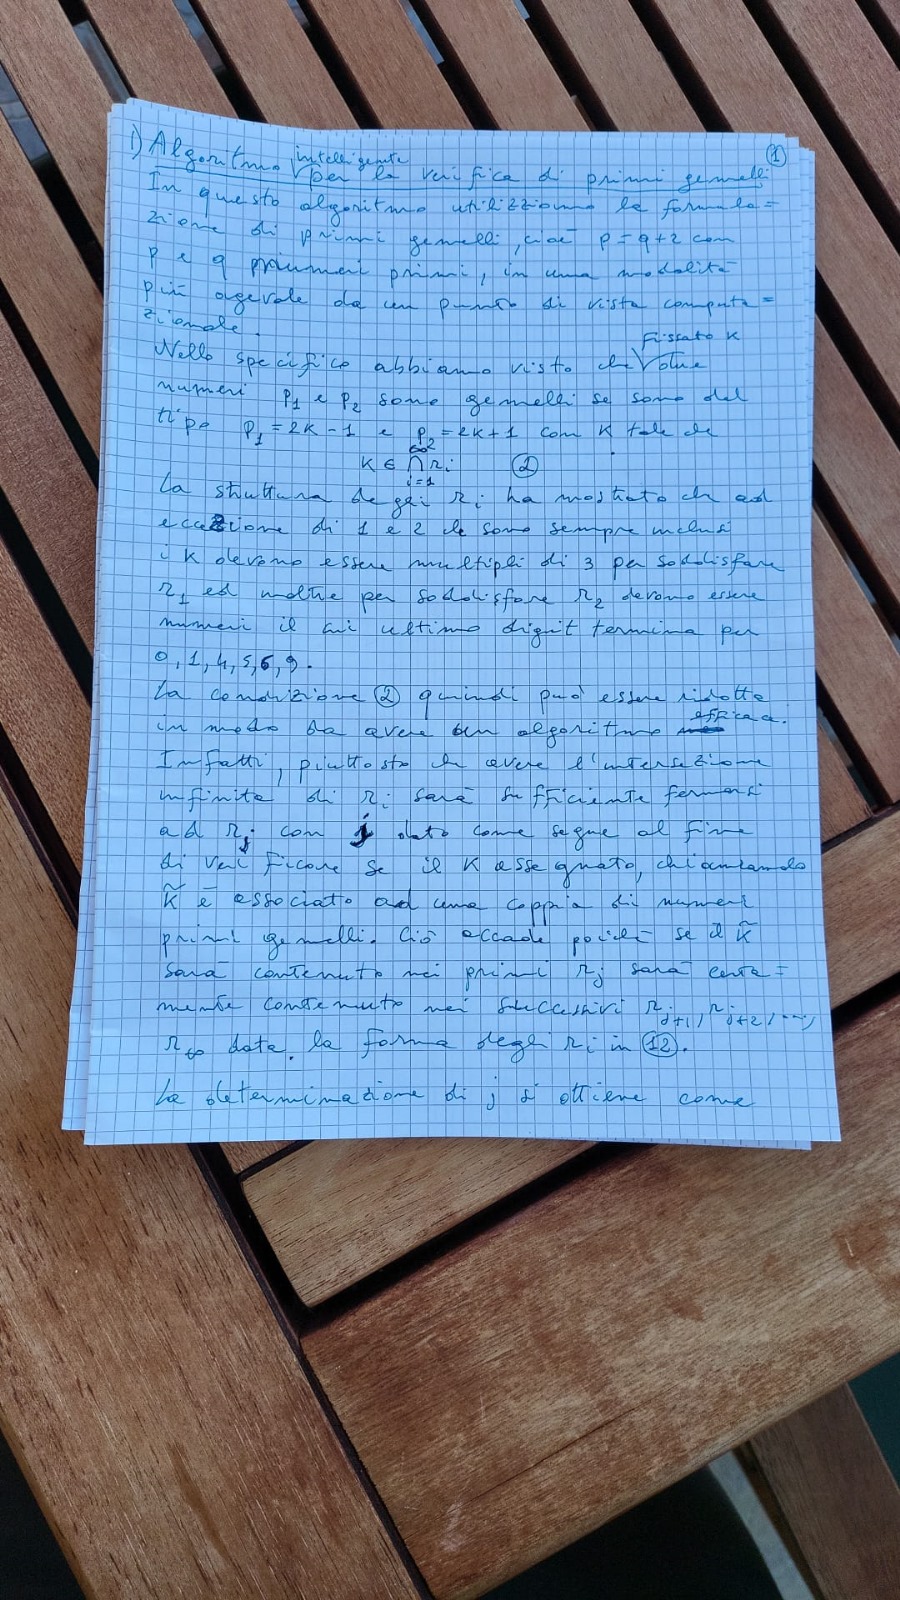 ①
1) Algoritmo intelligente per la verifica di primi gemelli
In questo algoritmo utilizziamo la formula=
zione di primi gemelli, cioè p = q+2 con
p e q numeri primi, in una modalità
più agevole da un punto di vista computa=
zionale.
Nello specifico abbiamo visto che fissato K due
numeri p1 e p2 sono gemelli se sono del
tipo p1 = 2K-1 e p2 = 2K+1 con K tale che
K ∈ ∞⋂i=1 ri ②
La struttura degli ri ha mostrato che ad
eccezione di 1 e 2 che sono sempre inclusi
i K devono essere multipli di 3 per soddisfare
r1 ed inoltre per soddisfare r2 devono essere
numeri il cui ultimo digit termina per
0, 1, 4, 5, 6, 9.
La condizione ② quindi può essere ridotta
in modo da avere un algoritmo efficace.
Infatti, piuttosto che avere l'intersezione
infinita di ri sarà sufficiente fermarsi
ad rj con j dato come segue al fine
di verificare se il K assegnato, chiamando
K̃ è associato ad una coppia di numeri
primi gemelli. Ciò accade poiché se il K̃
sarà contenuto nei primi rj sarà certa=
mente contenuto nei successivi rj+1, rj+2, ...,
r∞ data la forma degli ri in ⑫.
La determinazione di j si ottiene come